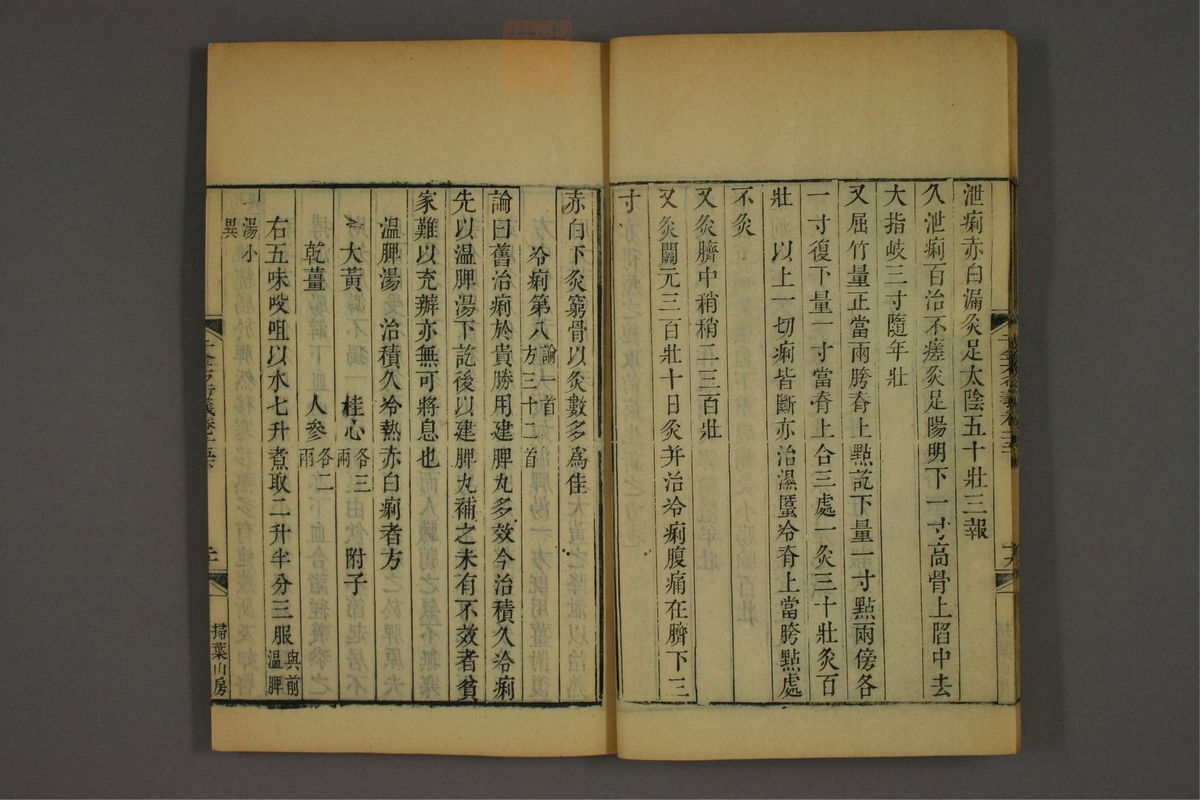 泄痢赤白漏灸足太陰五十壯三報
久泄痢百治不瘥灸足陽明下一寸高骨上陷中去
大指岐三寸隨年壯
又屈竹量正當兩胯脊上點訖下量一寸點兩傍各
一寸復下量一寸當脊上合三處一灸三十壯灸百
壯 以上一切痢皆斷亦治濕䘌冷脊上當胯點處
不灸
又灸臍中稍稍二三百壯
又灸關元三百壯十日灸并治冷痢腹痛在臍下三
寸
赤白下灸窮骨以灸數多為佳
冷痢第八 論一首 方三十二首
論曰舊治痢於貴勝用建脾丸多效今治積久冷痢
先以溫脾湯下訖後以建脾丸補之未有不效者貧
家難以充辦亦無可將息也
溫脾湯 治積久冷熱赤白痢者方
大黃 桂心各三兩 附子
乾薑 人參各二兩
右五味㕮咀以水七升煮取二升半分三服與前溫脾
湯小異
掃葉山房